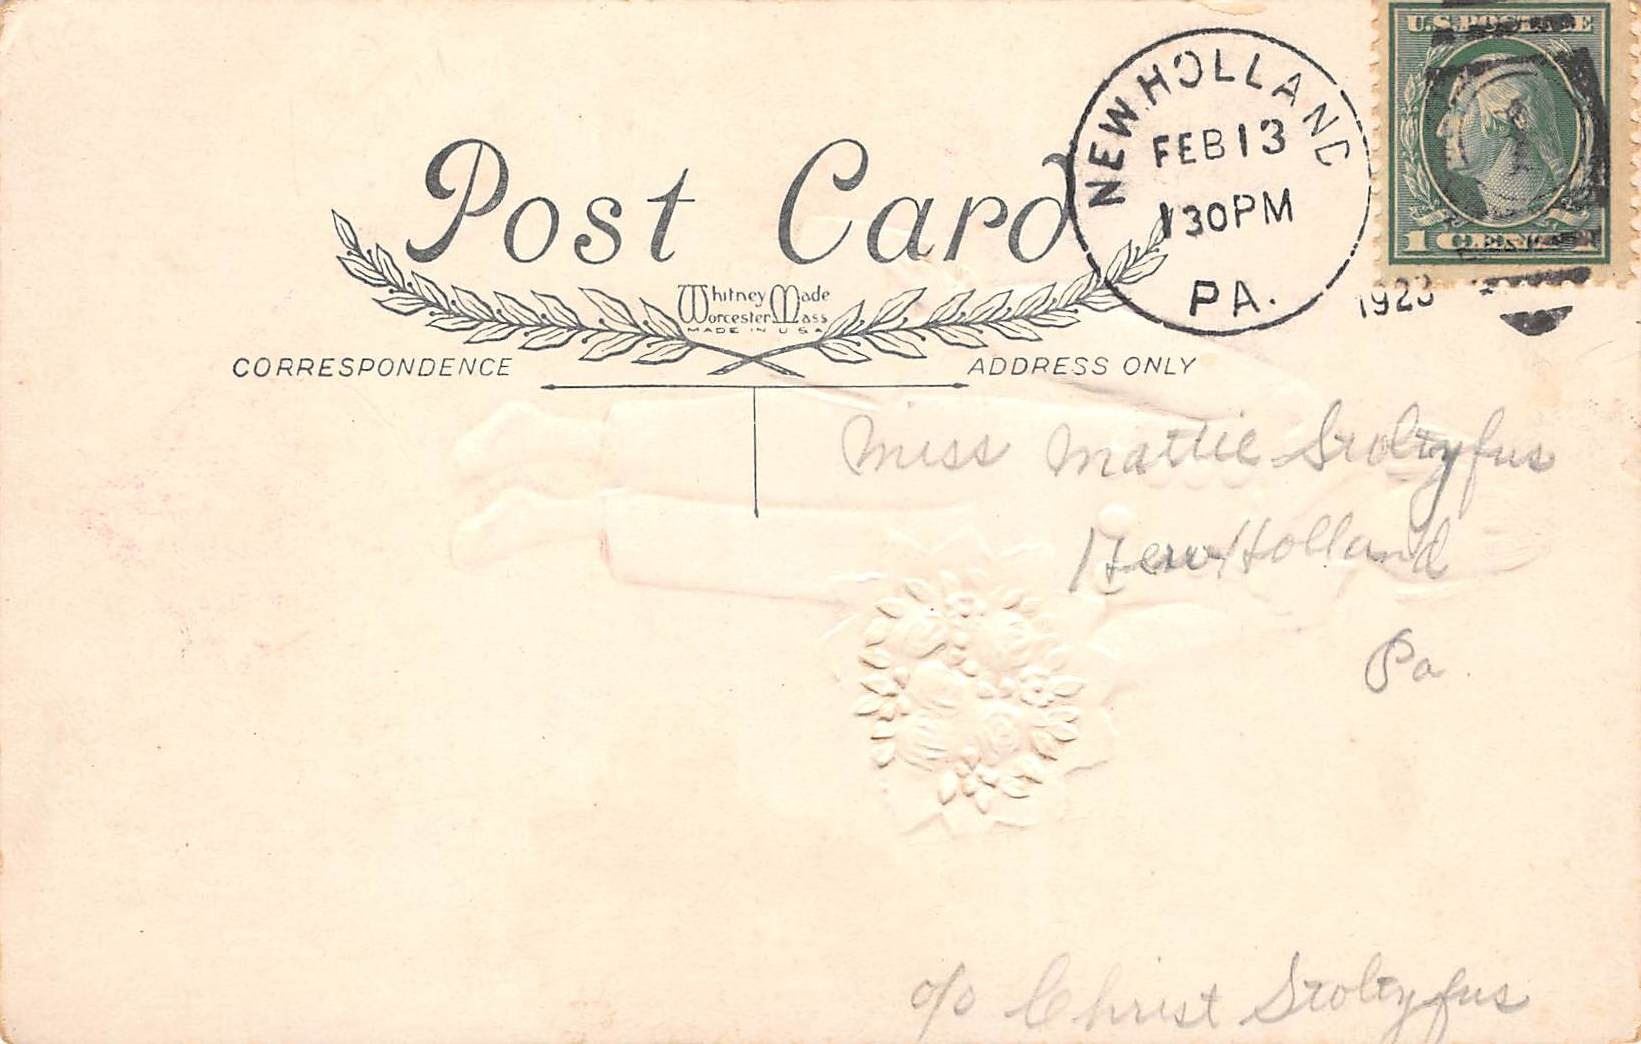 U.S. POSTAGE
1 CENT
NEW HOLLAND
FEB 13
130PM
PA.
1923
Post Card
Whitney Made
Worcester Mass
MADE IN USA
CORRESPONDENCE
ADDRESS ONLY
Miss Mattie Stoltzfus
New Holland
Pa.
c/o Christ Stoltzfus